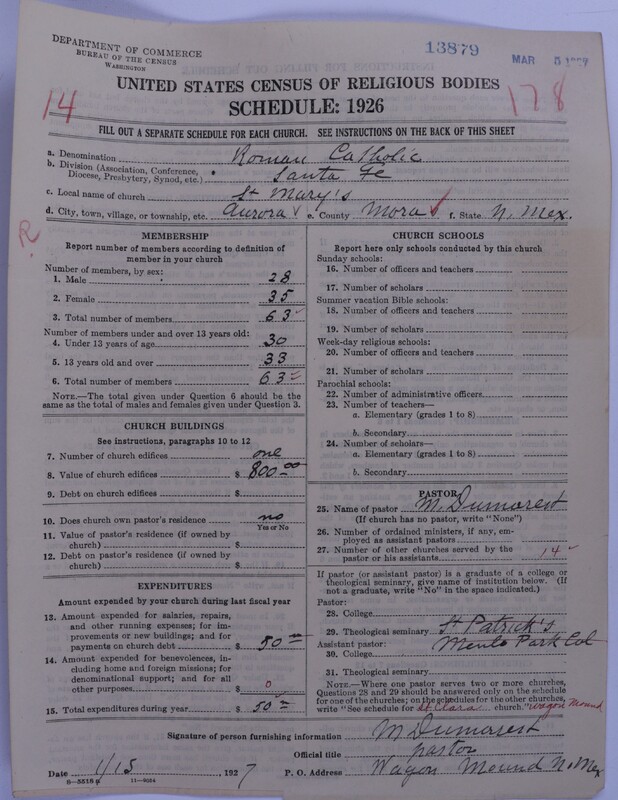 DEPARTMENT OF COMMERCE
BUREAU OF THE CENSUS
WASHINGTON
13879
MAR 5
UNITED STATES CENSUS OF RELIGIOUS BODIES
SCHEDULE: 1926
14
178
FILL OUT A SEPARATE SCHEDULE FOR EACH CHURCH. SEE INSTRUCTIONS ON THE BACK OF THIS SHEET
a. Denomination Roman Catholic
b. Division (Association, Conference, Diocese, Presbytery, Synod, etc.) Santa Fe
c. Local name of church St Mary's
d. City, town, village, or township, etc. Aurora e. County Mora f. State N. Mex.
R
MEMBERSHIP
Report number of members according to definition of
member in your church
Number of members, by sex:
1. Male 28
2. Female 35
3. Total number of members 63
Number of members under and over 13 years old:
4. Under 13 years of age 30
5. 13 years old and over 33
6. Total number of members 63
NOTE.—The total given under Question 6 should be
same as the total of males and females given under Question 3.
CHURCH BUILDINGS
See instructions, paragraphs 10 to 12
7. Number of church edifices one
8. Value of church edifices $ 800 00
9. Debt on church edifices $
10. Does church own pastor's residence no
Yes or No
11. Value of pastor's residence (if owned by
church) $
12. Debt on pastor's residence (if owned by
church) $
EXPENDITURES
Amount expended by your church during last fiscal year
13. Amount expended for salaries, repairs,
and other running expenses; for im-
provements or new buildings; and for
payments on church debt $ 50
14. Amount expended for benevolences, in-
cluding home and foreign missions; for
denominational support; and for all
other purposes $ 0
15. Total expenditures during year $ 50
CHURCH SCHOOLS
Report here only schools conducted by this church
Sunday schools:
16. Number of officers and teachers
17. Number of scholars
Summer vacation Bible schools:
18. Number of officers and teachers
19. Number of scholars
Week-day religious schools:
20. Number of officers and teachers
21. Number of scholars
Parochial schools:
22. Number of administrative officers
23. Number of teachers—
a. Elementary (grades 1 to 8)
b. Secondary
24. Number of scholars—
a. Elementary (grades 1 to 8)
b. Secondary
PASTOR
25. Name of pastor M. Dumarest
(If church has no pastor, write "None")
26. Number of ordained ministers, if any, em-
ployed as assistant pastors
27. Number of other churches served by the
pastor or his assistants 14
If pastor (or assistant pastor) is a graduate of a college or
theological seminary, give name of institution below. (If
not a graduate, write "No" in the space indicated.)
Pastor:
28. College
29. Theological seminary St Patrick's
Assistant pastor: Menlo Park Cal
30. College
31. Theological seminary
NOTE.—Where one pastor serves two or more churches,
Questions 28 and 29 should be answered only on the schedule
for one of the churches; on the schedules for the other churches,
write "See schedule for St Clara church." Wagon Mound
Signature of person furnishing information M Dumarest
Official title pastor
Date 1/15, 1927 P. O. Address Wagon Mound N. Mex
11—9584